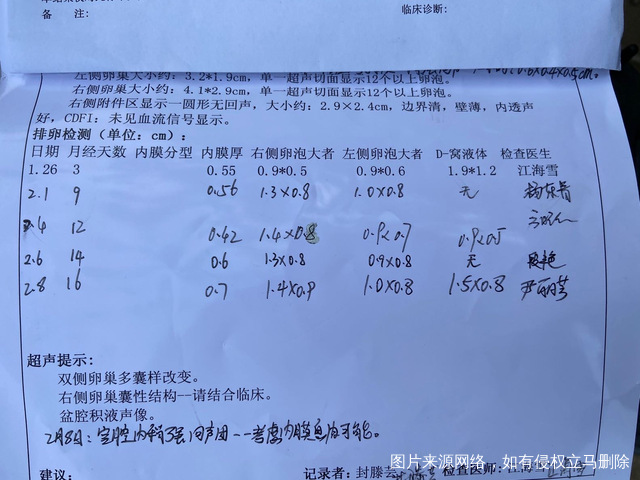 备 注: 临床诊断:
左侧卵巢大小约: 3.2*1.9cm, 单一超声切面显示12个以上卵泡。
右侧卵巢大小约: 4.1*2.9cm, 单一超声切面显示12个以上卵泡。
右侧附件区显示一圆形无回声, 大小约: 2.9×2.4cm, 边界清, 壁薄, 内透声
好, CDFI: 未见血流信号显示。
排卵检测(单位: cm):
日期 月经天数 内膜分型 内膜厚 右侧卵泡大者 左侧卵泡大者 D-窝液体 检查医生
1.26 3 0.55 0.9*0.5 0.9*0.6 1.9*1.2 江海雪
2.1 9 0.56 1.3×0.8 1.0×0.8 无
2.4 12 0.42 1.4×0.8 0.9×0.7 0.9×0.5
2.6 14 0.6 1.3×0.8 0.9×0.8 无
2.8 16 0.7 1.4×0.9 1.0×0.8 1.5×0.8 尹丽芸
超声提示:
双侧卵巢多囊样改变。
右侧卵巢囊性结构--请结合临床。
盆腔积液声像。
2月8日: 宫腔内稍强回声团--考虑内膜息肉可能。
建议: 记录者: 封滕芸 检查医师:
图片来源网络,如有侵权立马删除